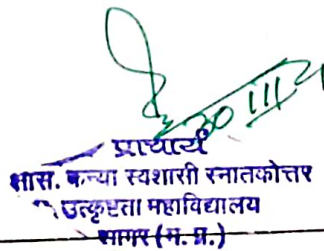 30 III
प्राचार्य
शास. कन्या स्वशासी स्नातकोत्तर
उत्कृष्टता महाविद्यालय
सागर (म. प्र.)